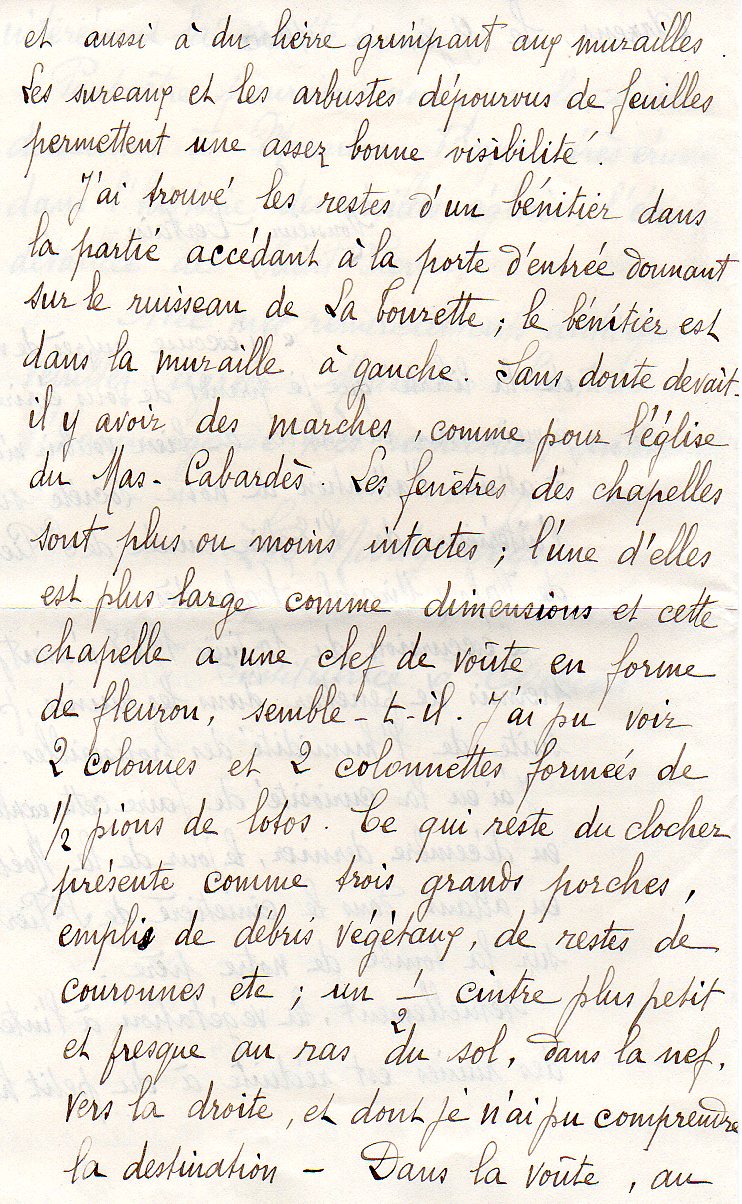 et aussi à du lierre grimpant aux murailles.
Les sureaux et les arbustes dépourvus de feuilles
permettent une assez bonne visibilité.
J'ai trouvé les restes d'un bénitier dans
la partie accédant à la porte d'entrée donnant
sur le ruisseau de La Tourette ; le bénitier est
dans la muraille à gauche. Sans doute devait-
il y avoir des marches, comme pour l'église
du Mas-Cabardès. Les fenêtres des chapelles
sont plus ou moins intactes ; l'une d'elles
est plus large comme dimensions et cette
chapelle a une clef de voûte en forme
de fleuron, semble-t-il. J'ai pu voir
2 colonnes et 2 colonnettes formées de
1/2 pions de lotos. Ce qui reste du clocher
présente comme trois grands porches,
emplis de débris végétaux, de restes de
couronnes etc ; un 1/2 cintre plus petit
et presque au ras du sol, dans la nef,
vers la droite, et dont je n'ai pu comprendre
la destination – Dans la voûte, au